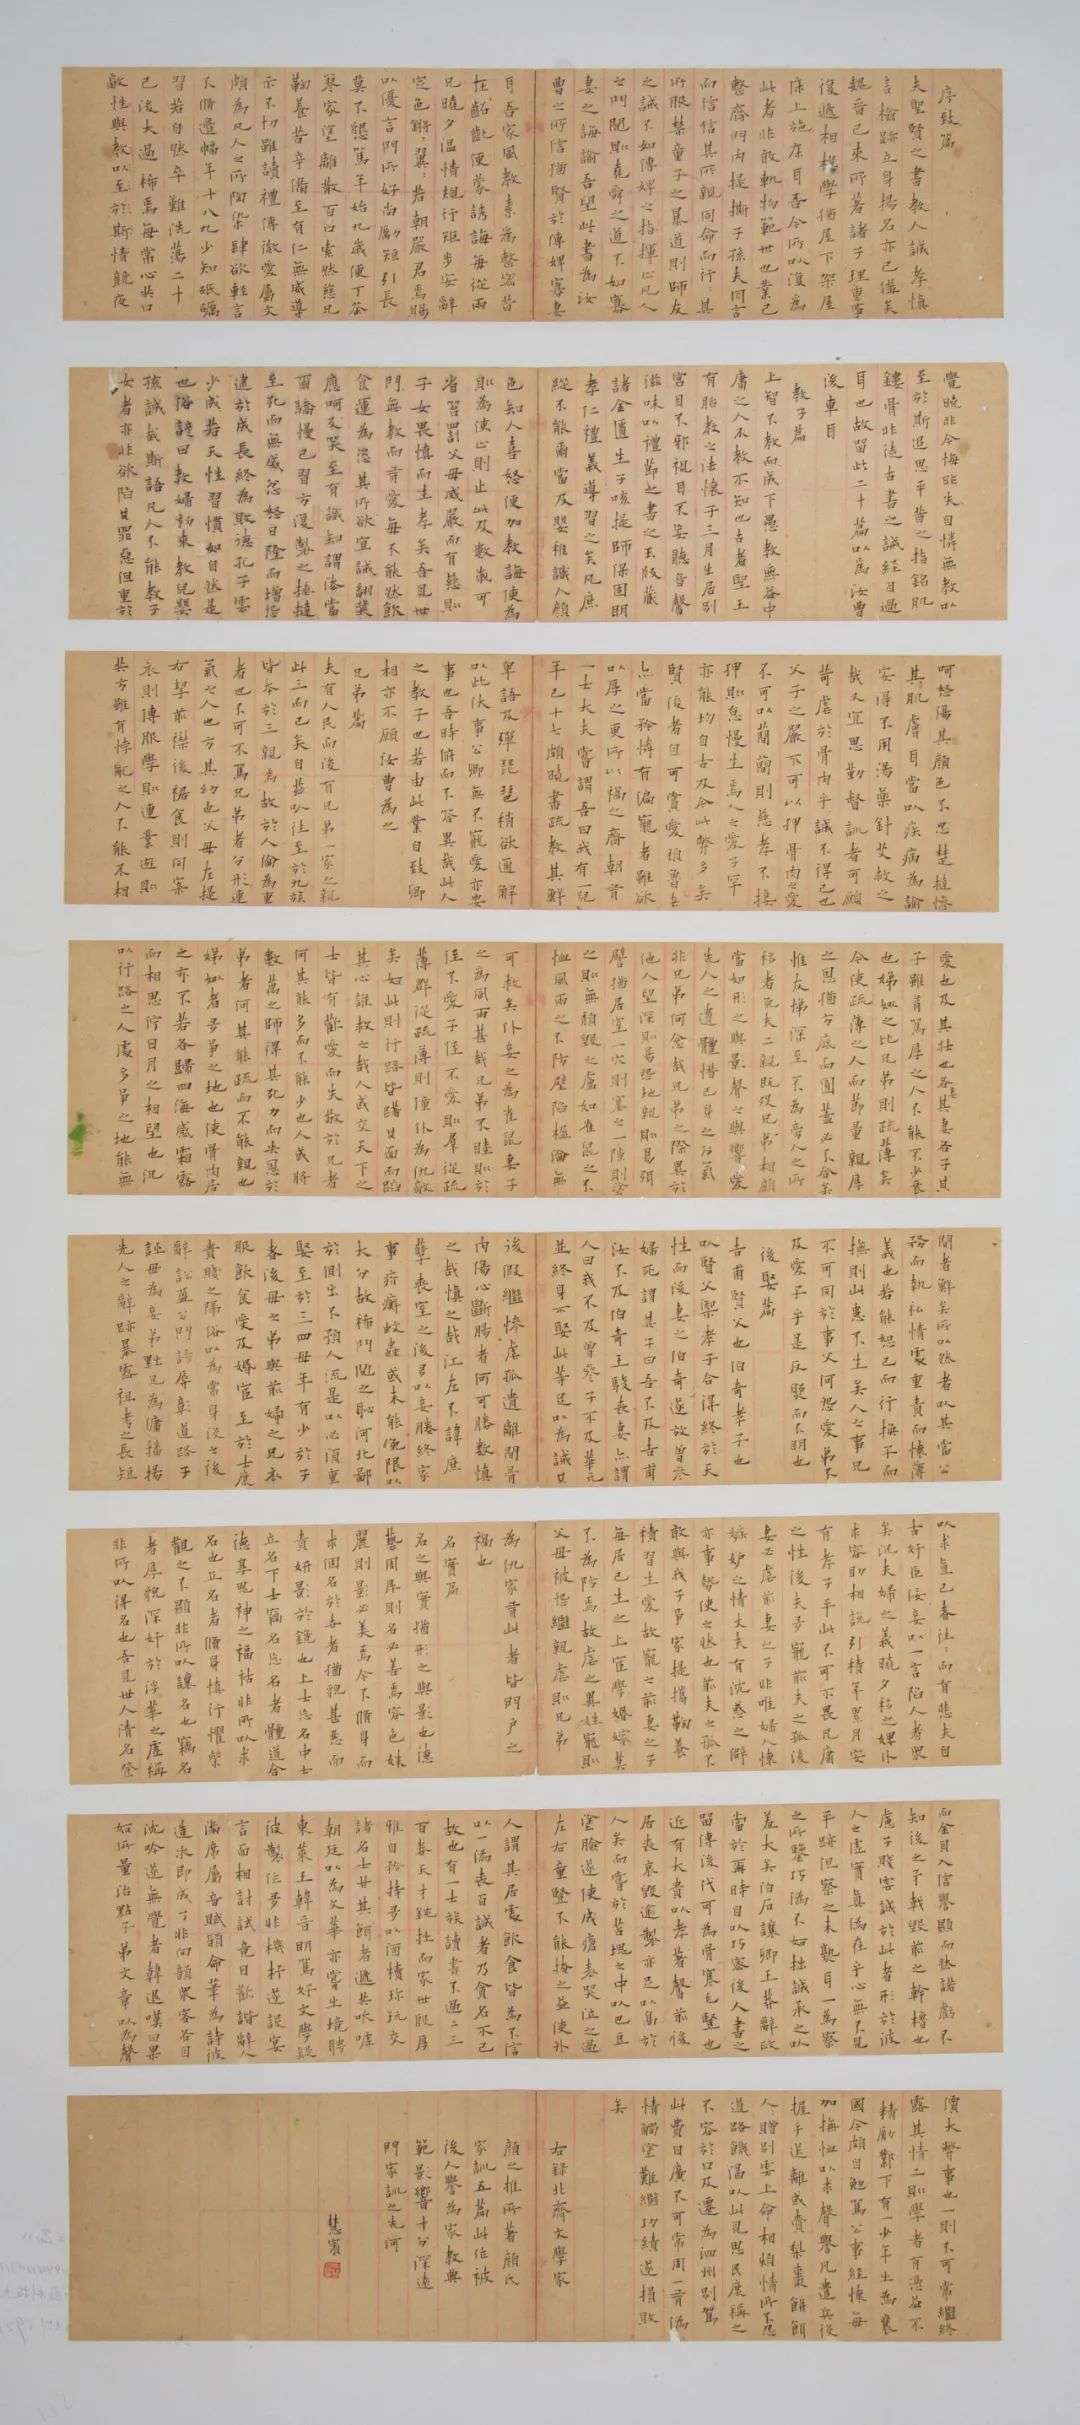 序致篇
夫聖賢之書教人誠孝慎
言檢跡立身揚名亦已備矣
魏晉已來所著諸子理重事
復遞相模學猶屋下架屋
床上施床耳吾今所以復為
此者非敢軌物範世也業已
整齊門內提撕子孫夫同言
而信信其所親同命而行々其
所服禁童子之暴道則師友
之誡不如傅婢之指揮止凡人
之鬥鬩則堯舜之道不如寡
妻之誨諭吾望此書為汝
曹之所信猶賢於傅婢寡妻
耳吾家風教素為整密昔
在齠齔便蒙誘誨每從兩
兄曉夕溫凊規行矩步安辭
定色鏘々翼々若朝嚴君焉賜
以優言問所好尚勵短引長
莫不懇篤年始九歲便丁荼
蓼家塗離散百口索然慈兄
鞠養苦辛備至有仁無威導
示不切雖讀禮傳微愛屬文
頗為凡人之所陶染肆欲輕言
不脩邊幅年十八九少知砥礪
習若自然卒難洗蕩二十
已後大過稀焉每常心共口
敵性與教以至於斯情競夜
覺曉非今悔昨失自憐無教以
至於斯追思平昔之指銘肌
鏤骨非徒古書之誡經目過
耳也故留此二十篇以為汝曹
後車耳
教子篇
上智不教而成下愚教無益中
庸之人不教不知也古者聖王
有胎教之法懷子三月生居別
宮目不邪視耳不妄聽音聲
滋味以禮節之書之玉版藏
諸金匱生子咳提師保固明
孝仁禮義導習之矣凡庶
縱不能爾當及嬰稚識人顏
色知人喜怒便加教誨使為
則為使止則止比及數歲可
省笞罰父母威嚴而有慈則
子女畏慎而生孝矣吾見世
門無教而有愛每不能然飲
食運為恣其所欲宜誡翻獎
應呵反笑至有識知謂法當
爾驕慢已習方復製之捶撻
至死而無威忿怒日隆而增怨
逮於成長終為敗德孔子雲
少成若天性習慣如自然是
也俗諺曰教婦初來教兒嬰
孩誠哉斯語凡人不能教子
女者亦非欲陷其罪惡但重於
呵怒傷其顏色不忍楚撻慘
其肌膚耳當以疾病為諭
安得不用湯藥針艾救之
哉又宜思勤督訓者可願
苛虐於骨肉乎誠不得已也
父子之嚴不可以狎骨肉之愛
不可以簡簡則慈孝不接
狎則怠慢生焉人之愛子罕
亦能均自古及今此弊多矣
賢俊者自可賞愛頑魯者
亦當矜憐有偏寵者雖欲
以厚之更所以禍之齊朝有
一士大夫嘗謂吾曰我有一兒
年已十七頗曉書疏教其鮮
卑語及彈琵琶稍欲通解
以此伏事公卿無不寵愛亦要
事也吾時俯而不答異哉此人
之教子也若由此業自致卿
相亦不願汝曹為之
兄弟篇
夫有人民而後有兄弟一家之親
此三而已矣自茲以往至於九族
皆本於三親焉故於人倫為重
者也不可不篤兄弟者分形連
氣之人也方其幼也父母左提
右挈前襟後裾食則同案
衣則傳服學則連業遊則
共方雖有悖亂之人不能不相
愛也及其壯也各其妻各子其
子雖有篤厚之人不能不少衰
也娣姒之比兄弟則疏薄矣
今使疏薄之人而節量親厚
之恩猶方底而圓蓋必不合矣
惟友悌深至不為旁人之所
移者免夫二親既歿兄弟相顧
當如形之與影聲之與響愛
先人之遺體惜己身之分氣
非兄弟何念哉兄弟之際異於
他人望深則易怨地親則易弭
譬猶居室一穴則塞之一隙則塗
之則無頹毀之慮如雀鼠之不
恤風雨之不防壁陷楹淪無
可救矣仆妾之為雀鼠妻子
之為風雨甚哉兄弟不睦則子
侄不愛子侄不愛則群從疏
薄群從疏薄則僮仆為仇敵
矣如此則行路皆踖其面而蹈
其心誰救之哉人或交天下之
士皆有歡愛而失敬於兄者
何其能多而不能少也人或將
數萬之師得其死力而失恩於
弟者何其能疏而不能親也
娣姒者多爭之地也使骨肉居
之亦不若各歸四海感霜露
而相思佇日月之相望也況
以行路之人處多爭之地能無
間者鮮矣所以然者以其當公
務而執私情處重責而懷薄
義也若能恕己而行換子而
撫則此患不生矣人之事兄
不可同於事父何怨愛弟不
及愛子乎是反照而不明也
後娶篇
吉甫賢父也伯奇孝子也
以賢父禦孝子合得終於天
性而後妻之伯奇遂放曾參
婦死謂其子曰吾不及吉甫
汝不及伯奇王駿喪妻亦謂
人曰我不及曾參子不及華元
並終身不娶此等足以為誡其
後假繼慘虐孤遺離間骨
肉傷心斷腸者何可勝數慎
之哉慎之哉江左不諱庶
孽喪室之後多以妾媵終家
事疥癬蚊虻或未能免限以
大分故稀鬥鬩之恥河北鄙
於側出不預人流是以必須重
娶至於三四母年有少於子
者後母之弟與前婦之兄衣
服飲食愛及婚宦至於士庶
貴賤之隔俗以為常身沒之後
辭訟盈公門謗辱彰道路子
誣母為妾弟黜兄為傭播揚
先人之辭跡暴露祖考之長短
以求直己者往往而有悲夫自
古奸臣佞妾以一言陷人者眾
矣況夫婦之義曉夕移之婢仆
求容助相說引積年累月安
有孝子乎此不可不畏凡庸
之性後夫多寵前夫之孤後
妻必虐前妻之子非唯婦人懷
嫉妒之情丈夫有沈惑之僻
亦事勢使之然也前夫之孤不
敢與我子爭家提攜鞠養
積習生愛故寵之前妻之子
每居己生之上宦學婚嫁莫
不為防焉故虐之異姓寵則
父母被怨繼親虐則兄弟
為仇家有此者皆門戶之
禍也
名實篇
名之與實猶形之與影也德
藝周厚則名必善焉容色姝
麗則影必美焉今不脩身而
求固名於世者猶貌甚惡而
責妍影於鏡也上士忘名中士
立名下士竊名忘名者體道合
德享鬼神之福祜非所以求
名也立名者脩身慎行懼榮
觀之不顯非所以讓名也竊名
者厚貌深奸於浮華之虛稱
非所以得名也吾見世人清名登
而金貝入信譽顯而然諾虧不
知後之矛戟毀前之幹櫓也
虙子賤雲誠於此者形於彼
人之虛實真偽在乎心無不見
乎跡但察之未熟耳一為察
之所鑒巧偽不如拙誠承之以
羞大矣伯石讓卿王莽辭政
當於爾時自以巧密後人書之
留傳後代可為骨寒毛豎也
近有大貴以孝著聲前後
居喪哀毀逾製亦已以高於
人矣而嘗於苫塊之中以巴豆
塗臉遂使成瘡表哭泣之過
左右童豎不能掩之益使外
人謂其居處飲食皆為不信
以一偽喪百誠者乃貪名不已
故也有一士族讀書不過二三
百卷天才鈍拙而家世殷厚
雅自矜持多以酒犢珍玩交
諸名士甘其餌者遞共吹噓
朝廷以為文華亦嘗出境聘
東萊王韓晉明篤好文學疑
彼製作多非機杼遂設宴
言面相討試竟日歡諧辭人
滿席屬音賦韻命筆為詩彼
造次即成了非向韻眾客各自
沈吟遂無覺者韓退嘆曰果
如所量治點子弟文章以為聲
價大弊事也一則不可常繼終
露其情二則學者有憑益不
精勵鄴下有一少年出為襄
國令頗自勉篤公事經懷每
加撫恤以求聲譽凡遣兵役
握手送離或賫梨棗餅餌
人々贈別雲上命相煩情所不忍
道路饑渴以此見思民庶稱之
不容於口及遷為泗州別駕
此費日廣不可常周一有偽
情觸塗難繼功績遂損敗
矣
右錄北齊文學家
顏之推所著顏氏
家訓五篇此作被
後人譽為家教典
範影響十分深遠
門家訓之先河
慧賓